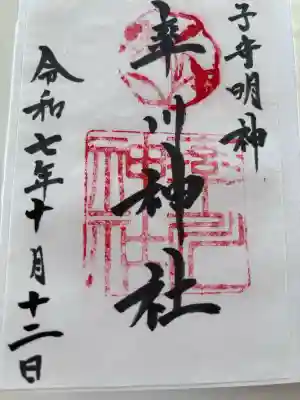 子守明神
率川神社
令和七年十月十二日